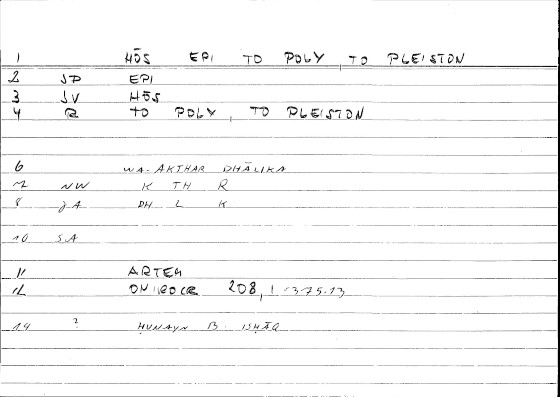 1 HŌS EPI TO POLY, TO PLEISTON
2 JP EPI
3 JV HŌS
4 R TO POLY, TO PLEISTON
6 WA-AKTHAR DHĀLIKA
7 NW K TH R
8 JA DH L K
10 SA
11 ARTEM
12 ONIROCR 208, 1 375.13
14 ? ḤUNAYN B. ISḤĀQ